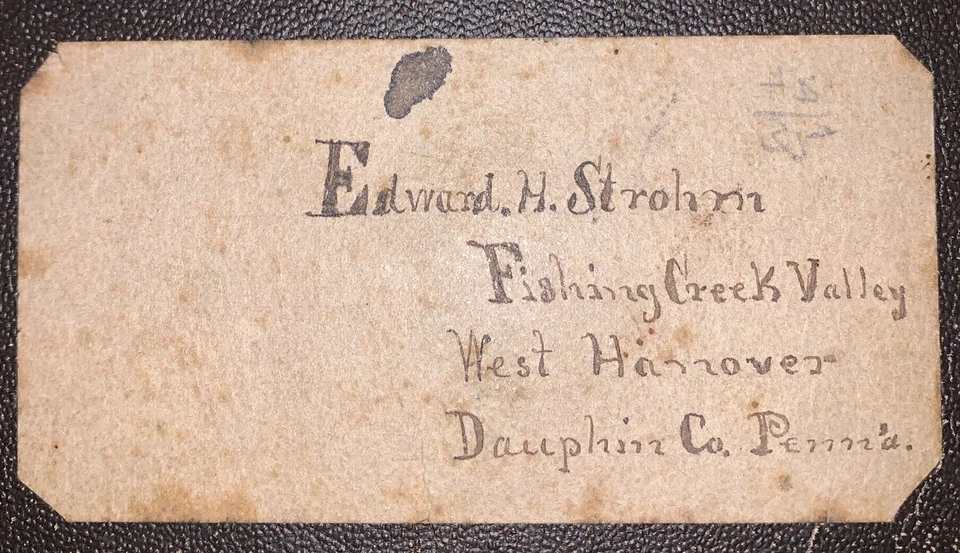 Edward. H. Strohm
Fishing Creek Valley
West Hanover
Dauphin Co. Penn'a.